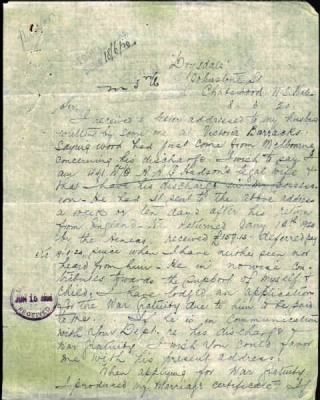 18/6/20
"Dorsdale"
Johnstone St
Chatswood N.S.Wales
8. 6. 20
Sir,
I receive a letter addressed to my husband
written by some one at Victoria Barracks.
Saying word had just come from Melbourne
concerning his discharge. I wish to say I
am legal wife &
that I have his discharge in my possession
- He had it sent to the above address
a week or ten days after his return
from England. returned Jany 16th 1920
by the received £159-15- deferred pay
since when I have neither seen nor
heard from him. He in no wise con-
tributes towards the support of myself or
child. I have lodged an application
for the War Gratuity due to him to be paid
to me. If he is in communication
with Your Dept. re his discharge &
war gratuity I wish You could favor
me with his present address.
When applying for War Gratuity
I produced my marriage certificate. If
JUN 15 1920
RECEIVED